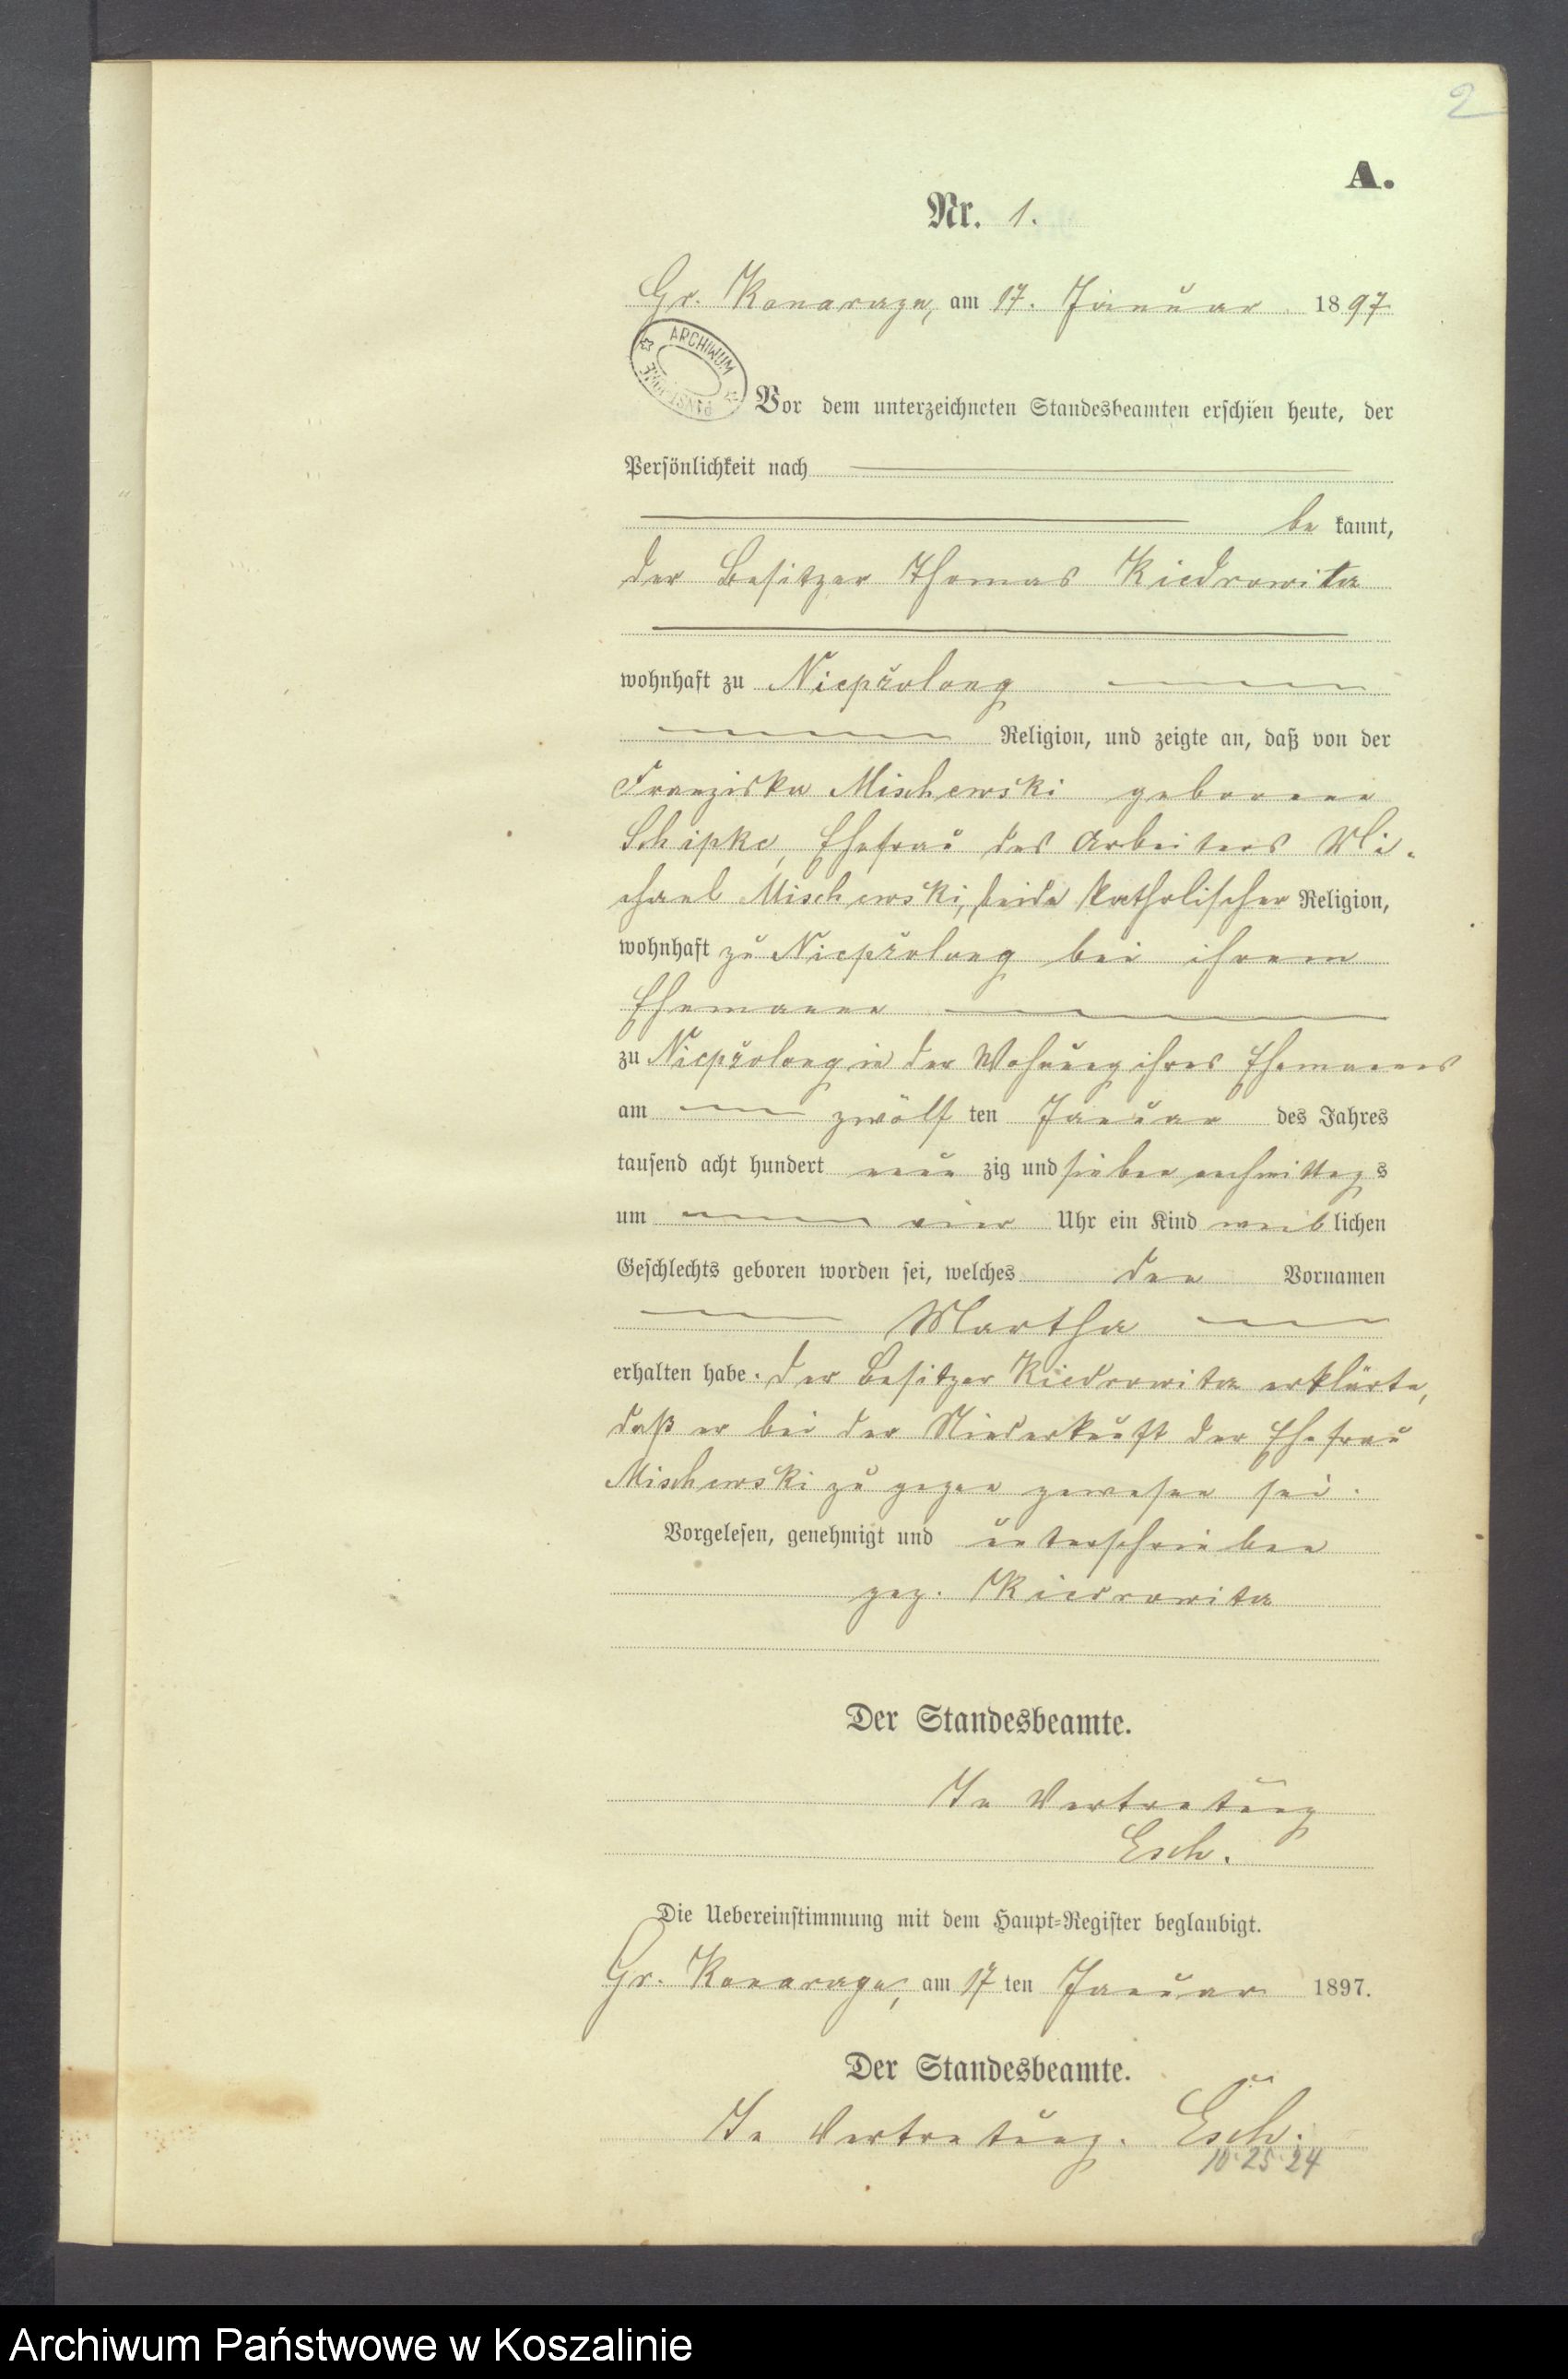 2
A.
Nr. 1.
Gr. Konarczyn, am 17. Januar 1897
ARCHIWUM PAŃSTWOWE
Vor dem unterzeichneten Standesbeamten erschien heute, der
Persönlichkeit nach
be kannt,
der Besitzer Thomas Kiedrowita
wohnhaft zu
Religion, und zeigte an, daß von der
Franziska Mischewski geborene
Schipke, Ehefrau des Arbeiters Mi-
chael Mischewski, beide katholischer Religion,
wohnhaft zu bei ihrem
Ehemanne
zu in der Wohnung ihres Ehemannes
am zwölf ten Januar des Jahres
tausend acht hundert neun zig und sieben nachmittag s
um vier Uhr ein Kind weib lichen
Geschlechts geboren worden sei, welches den Vornamen
Martha
erhalten habe. Der Besitzer Kiedrowita erklärte,
daß er bei der Niederkunft der Ehefrau
Mischewski zu gegen gewesen sei.
Vorgelesen, genehmigt und unterschrieben
gez. Kiedrowita
Der Standesbeamte.
In Vertretung
Esch.
Die Uebereinstimmung mit dem Haupt-Register beglaubigt.
Gr. am 17 ten Januar 1897.
Der Standesbeamte.
In Vertretung. Esch.
10.25.24
Archiwum Państwowe w Koszalinie